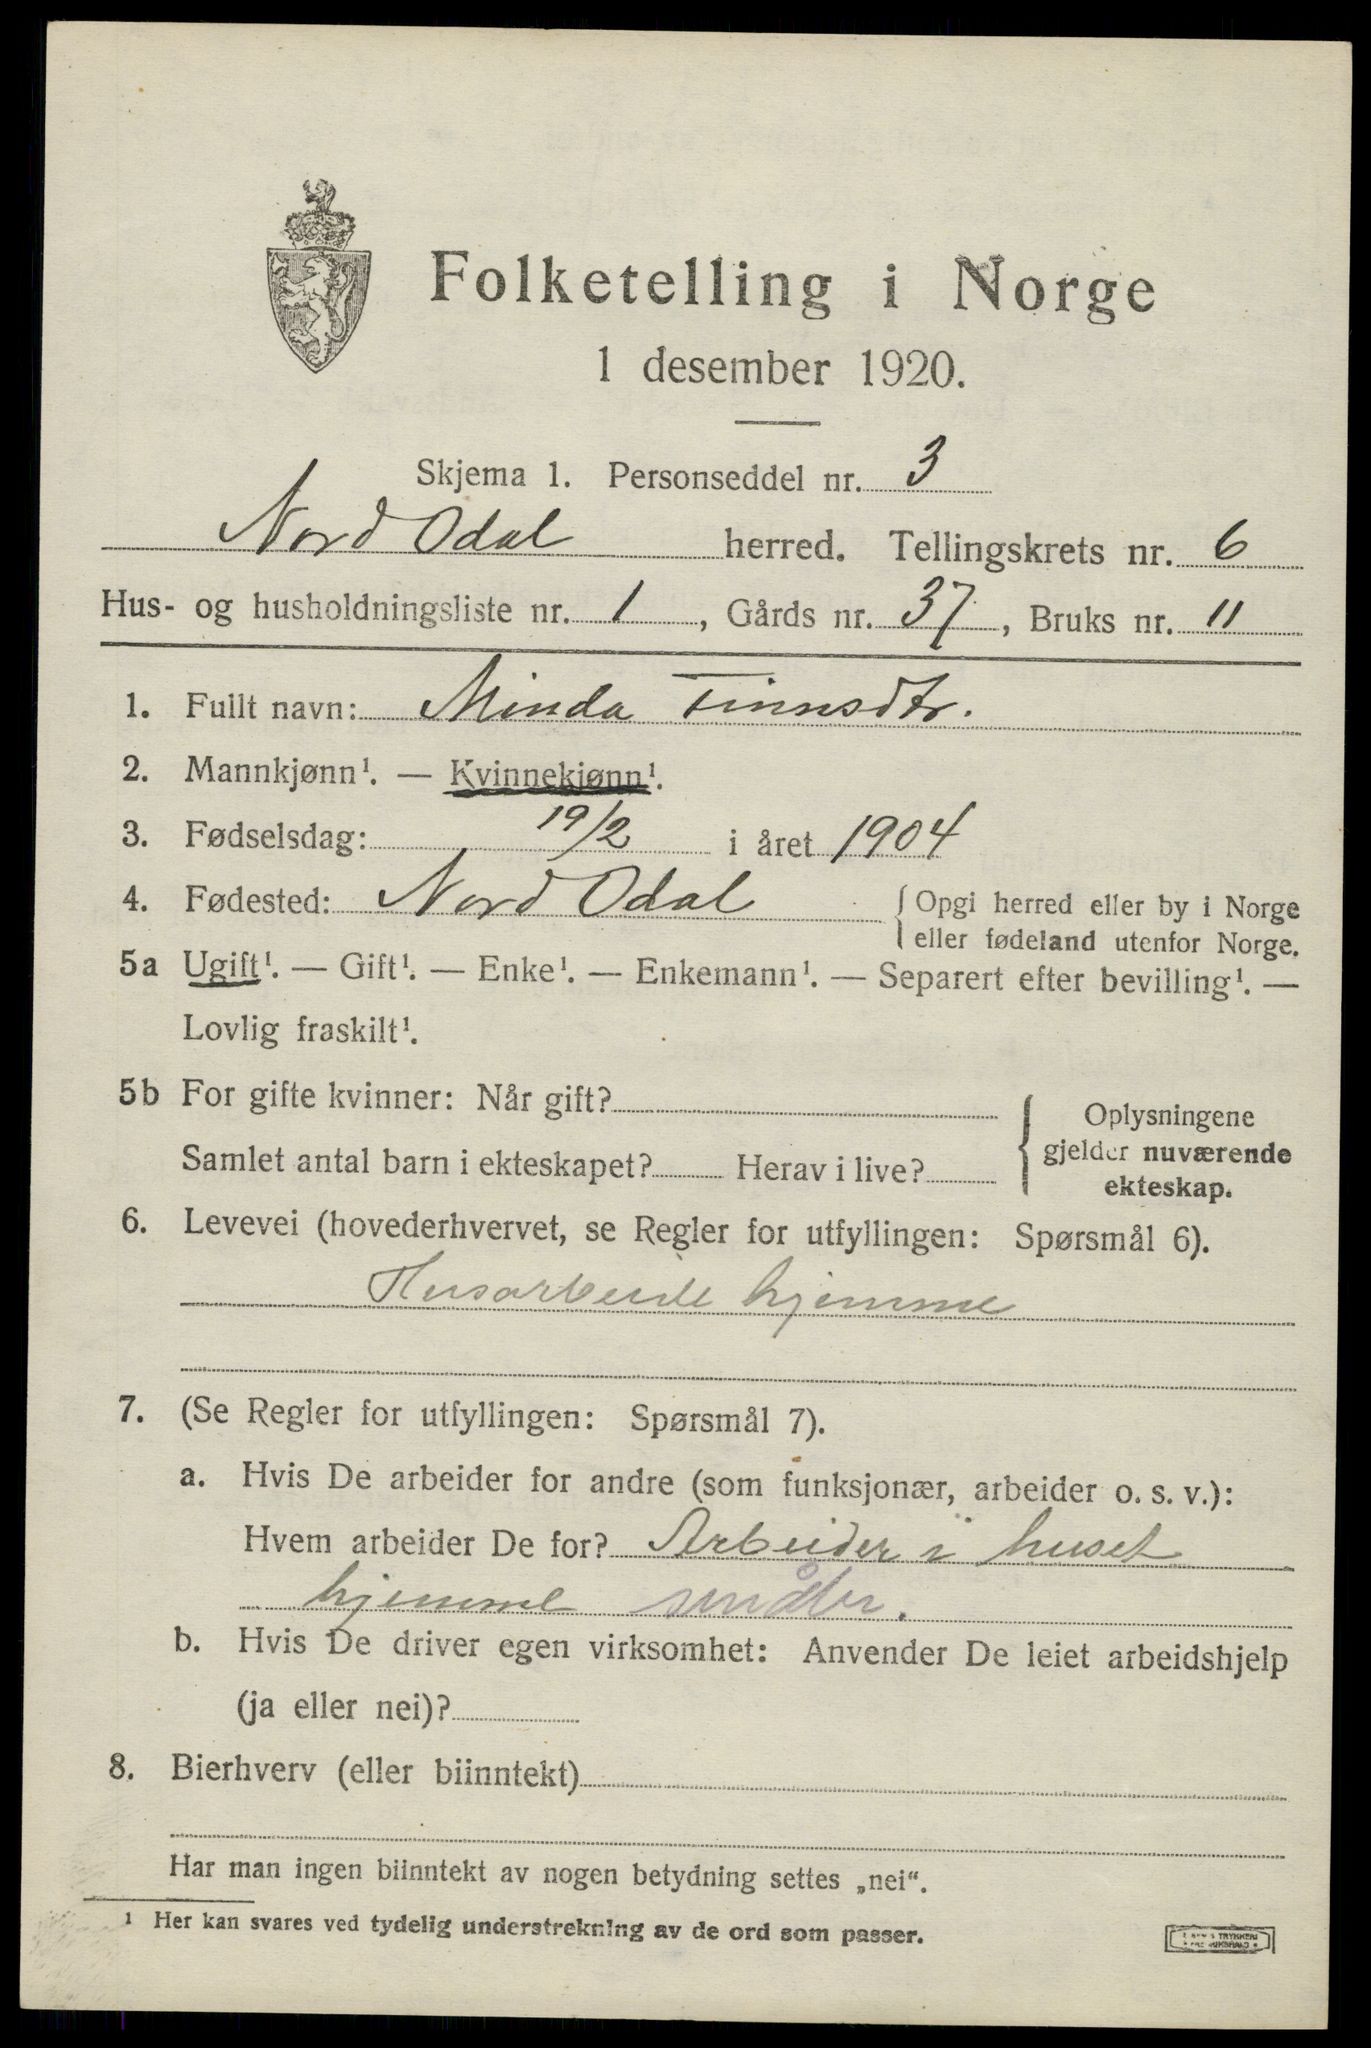 Folketelling i Norge
1 desember 1920.
Skjema 1. Personseddel nr. 3
Nord Odal herred. Tellingskrets nr. 6
Hus- og husholdningsliste nr. 1, Gårds nr. 37, Bruks nr. 11
1. Fullt navn: Minda Finnsdtr.
2. Mannkjønn¹. — Kvinnekjønn¹.
3. Fødselsdag: 19/2 i året 1904
4. Fødested: Nord Odal { Opgi herred eller by i Norge
eller fødeland utenfor Norge.
5a Ugift¹. — Gift¹. — Enke¹. — Enkemann¹. — Separert efter bevilling¹. —
Lovlig fraskilt¹.
5b For gifte kvinner: Når gift?
Samlet antal barn i ekteskapet? Herav i live?
{ Oplysningene
gjelder nuværende
ekteskap.
6. Levevei (hovederhvervet, se Regler for utfyllingen: Spørsmål 6).
Husarbeide hjemme
7. (Se Regler for utfyllingen: Spørsmål 7).
a. Hvis De arbeider for andre (som funksjonær, arbeider o. s. v.):
Hvem arbeider De for? Arbeider i huset
hjemme
b. Hvis De driver egen virksomhet: Anvender De leiet arbeidshjelp
(ja eller nei)?
8. Bierhverv (eller biinntekt)
Har man ingen biinntekt av nogen betydning settes „nei“.
¹ Her kan svares ved tydelig understrekning av de ord som passer.